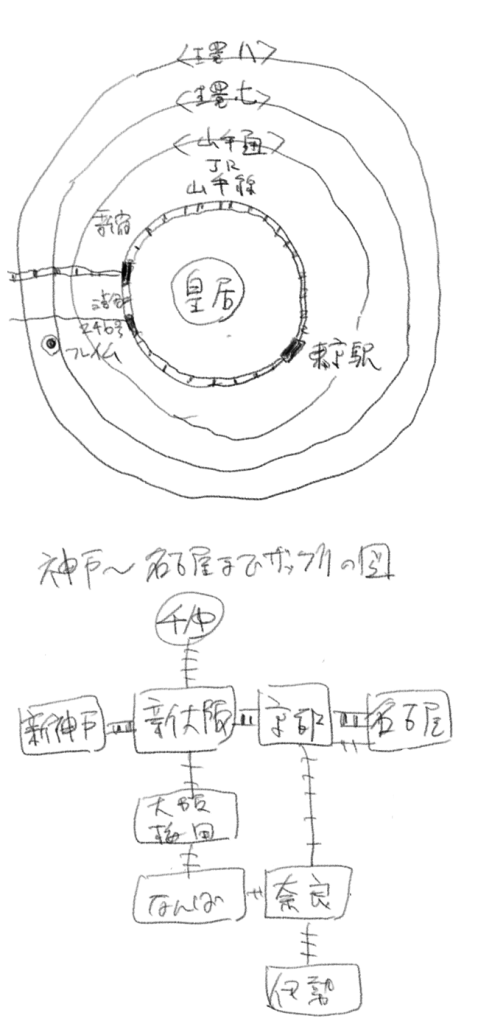 環八
環七
山手通
JR
山手線
新宿
皇居
渋谷
246号
フレイム
東京駅
神戸〜名古屋までザックリの図
千中
新神戸
新大阪
京都
名古屋
大阪
梅田
なんば
奈良
伊勢